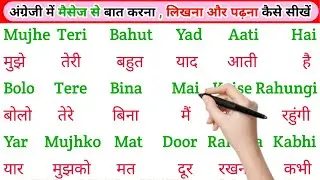 अंग्रेजी में मैसेज से बात करना , लिखना और पढ़ना कैसे सीखें
Mujhe Teri Bahut Yad Aati Hai
मुझे तेरी बहुत याद आती है
Bolo Tere Bina Mai Rahungi
बोलो तेरे बिना मैं रहुंगी
Yar Mujhko Mat Door Kabhi
यार मुझको मत दूर रखना कभी